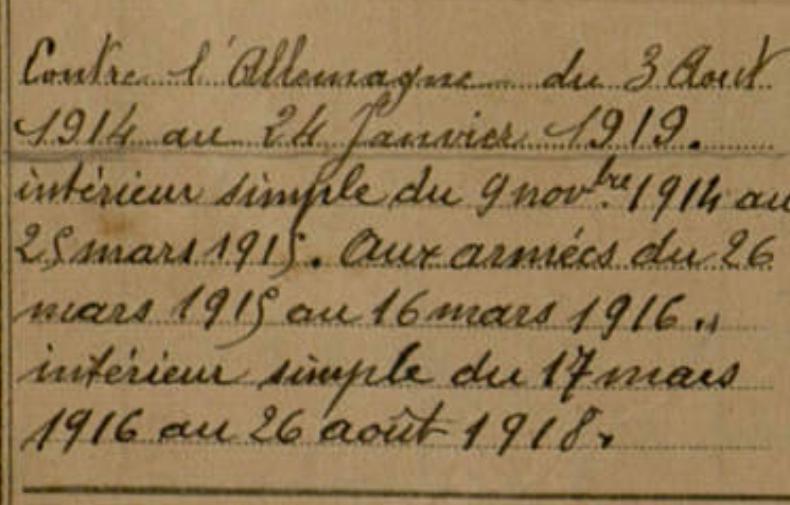 Contre l'Allemagne du 3 Aout
1914 au 24 Janvier 1919.
intérieur simple du 9 novbre 1914 au
25 mars 1915. Aux armées du 26
mars 1915 au 16 mars 1916.,
intérieur simple du 17 mars
1916 au 26 août 1918.